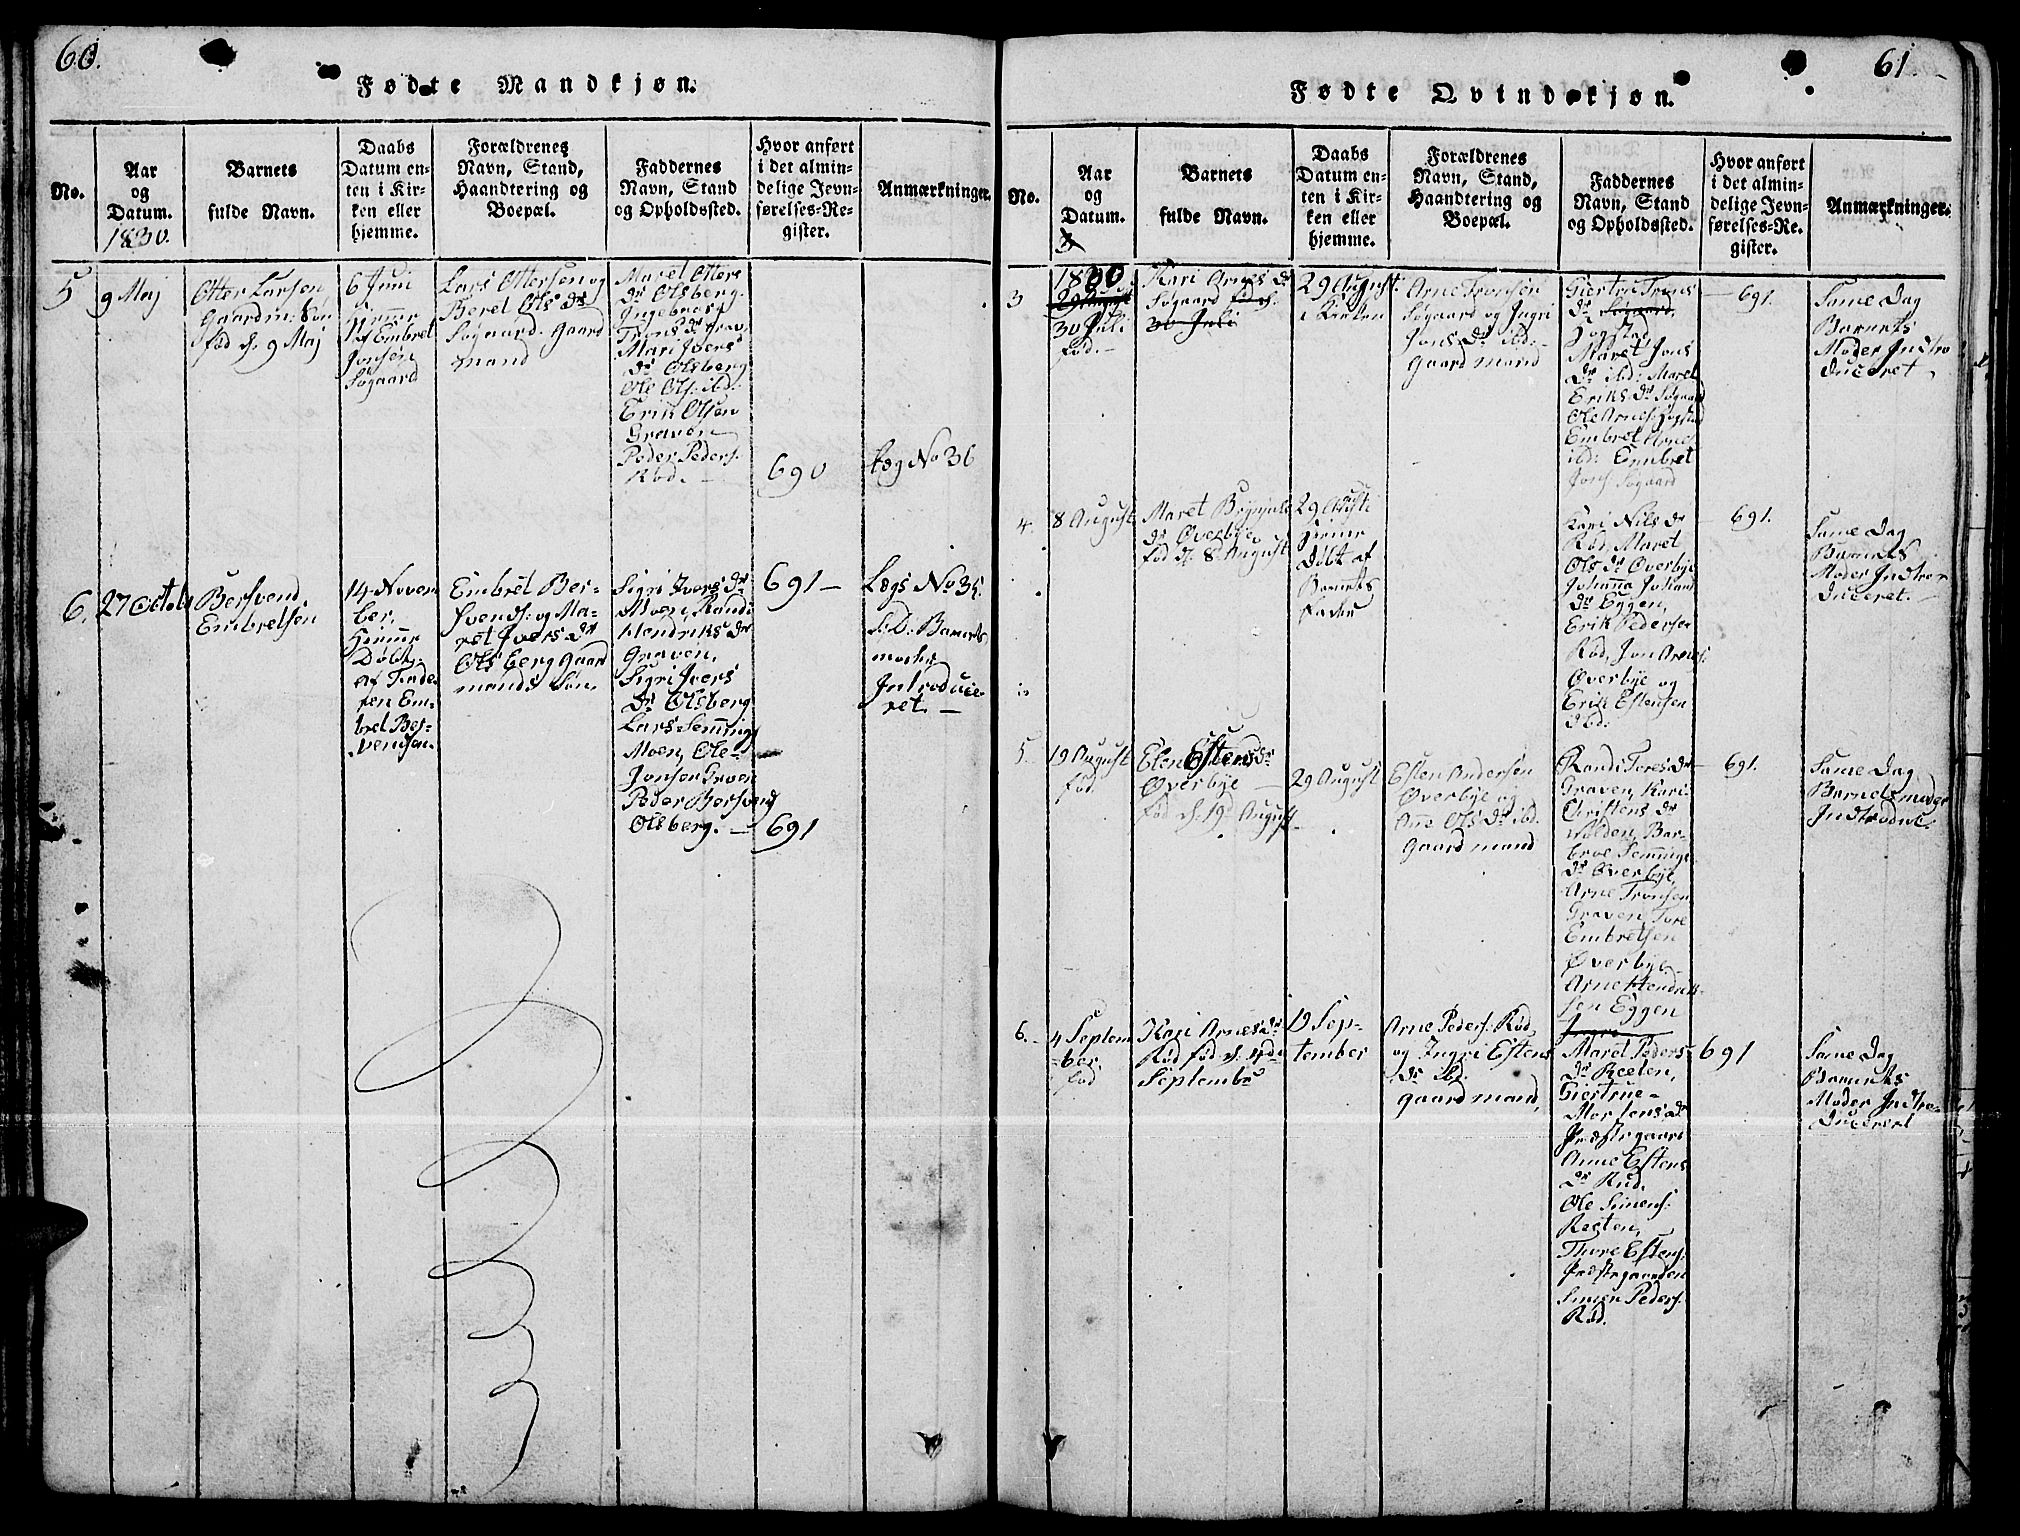 60.
Fødte Mandkjøn.
No.
Aar
og
Datum.
1830.
Barnets
fulde Navn.
Daabs
Datum en-
ten i Kir-
ken eller
hjemme.
Forældrenes
Navn, Stand,
Haandtering og
Boepæl.
Faddernes
Navn, Stand
og Opholdssted.
Hvor anført
i det almin-
delige Jevn-
førelses-Re-
gister.
Anmærkninger.
5
9 Maj
Otter Larsen
Gaardm: Søn
fød d. 9 Maj
6 Juni
Hjemme
af Embret
Jonsen
Søgaard
Lars Ottersen og
Beret Ols dr
Søgaard. Gaard
mand
Maret Otters
dr Olsberg.
Ingeborg
Trons dr Grav.
Mari Ivers
dr Olsberg
Ole Ols: ibd:
Erik Olsen
Graven
Peder Peders.
Rød. –
690
Læg No 36
6.
27 Octob
Bersvend
Embretsen
14 Novem
ber.
Hjemme
Døbt
af Fade-
ren Em-
bret Ber-
svendsen.
Embret Ber-
svends: og Ma-
ret Ivers dr
Olsberg Gaard
mands Søn.
Sigri Ivers dr
Moen, Randi
Hendriks dr
Graven,
Sigri Ivers
dr Olsberg
Lars Semmings
Moen, Ole
Jonsen Graven
Peder Bersvend
Olsberg. –
691 –
691
Lægs No 35.
S: D: Barnets
moder
Introduce-
ret. –
61
Fødte Qvindekjøn.
No.
Aar
og
Datum.
Barnets
fulde Navn.
Daabs
Datum en-
ten i Kir-
ken eller
hjemme.
Forældrenes
Navn, Stand,
Haandtering og
Boepæl.
Faddernes
Navn, Stand
og Opholdssted.
Hvor anført
i det almin-
delige Jevn-
førelses-Re-
gister.
Anmærkninger.
3
1830
29 August
30 Juli
fød. –
Kari Arnes dr
Søgaard fød d.
30 Juli
29 August
i Kirken
Arne Tronsen
Søgaard og Ingri
Jons dr ibd:
Gaardmand
Giertru Trons
dr Søgaard,
Hogstad,
Maret Jons
dr ibd: Maret
Eriks dr Søgaard
Ole Arnes: Hogstad
Embret Arnes
ibd: Embret
Jons: Søgaard
691.
Same Dag
Barnets
Moder Indtro
duceret.
4.
8 August
Maret
dr Øverbye
fød d. 8 August
29 August
Hjemme
Døbt af
Barnets
Fader
Kari Nils dr
Rød, Maret
Ols dr Øverbye
Johanna Johans
dr Eggen,
Erik Pedersen
Rød, Jon Arnes:
Øverbye og
Erik Estensen
ibd:
691.
Same Dag
Barnets
Moder Indtro-
duceret. –
5
19 August
fød.
Elen Estens dr
Øverbye
fød d. 19 August
29 August
Esten Andersen
Øverbye og
Anne Ols dr ibd.
Gaardmand
Randi Tores dr
Graven, Kari
Christens dr
Volden, Bar-
broe Semmings
dr Øverbye,
Arne Tronsen
Graven, Tore
Embretsen
Øverbye
Arne Hendrik-
sen Eggen
691.
Same Dag
Barnets moder
Indtroduc.
6.
4 Septem
ber.
fød
Kari Arnes dr
Rød fød d. 4de
September
19 Sep-
tember
Arne Peders: Rød,
og Ingri Estens
dr ibd.
gaardmand,
Ingri
Maret Peders
dr Reeten,
Giertrue
Mortens dr
Præstegaard
Anne Estens
dr Rud,
Ole Simens:
Reeten,
Thore Estens:
Præstegaarden
Simen Peders:
Rød.
691
Same Dag
Barnets
Moder Indtro-
duceret